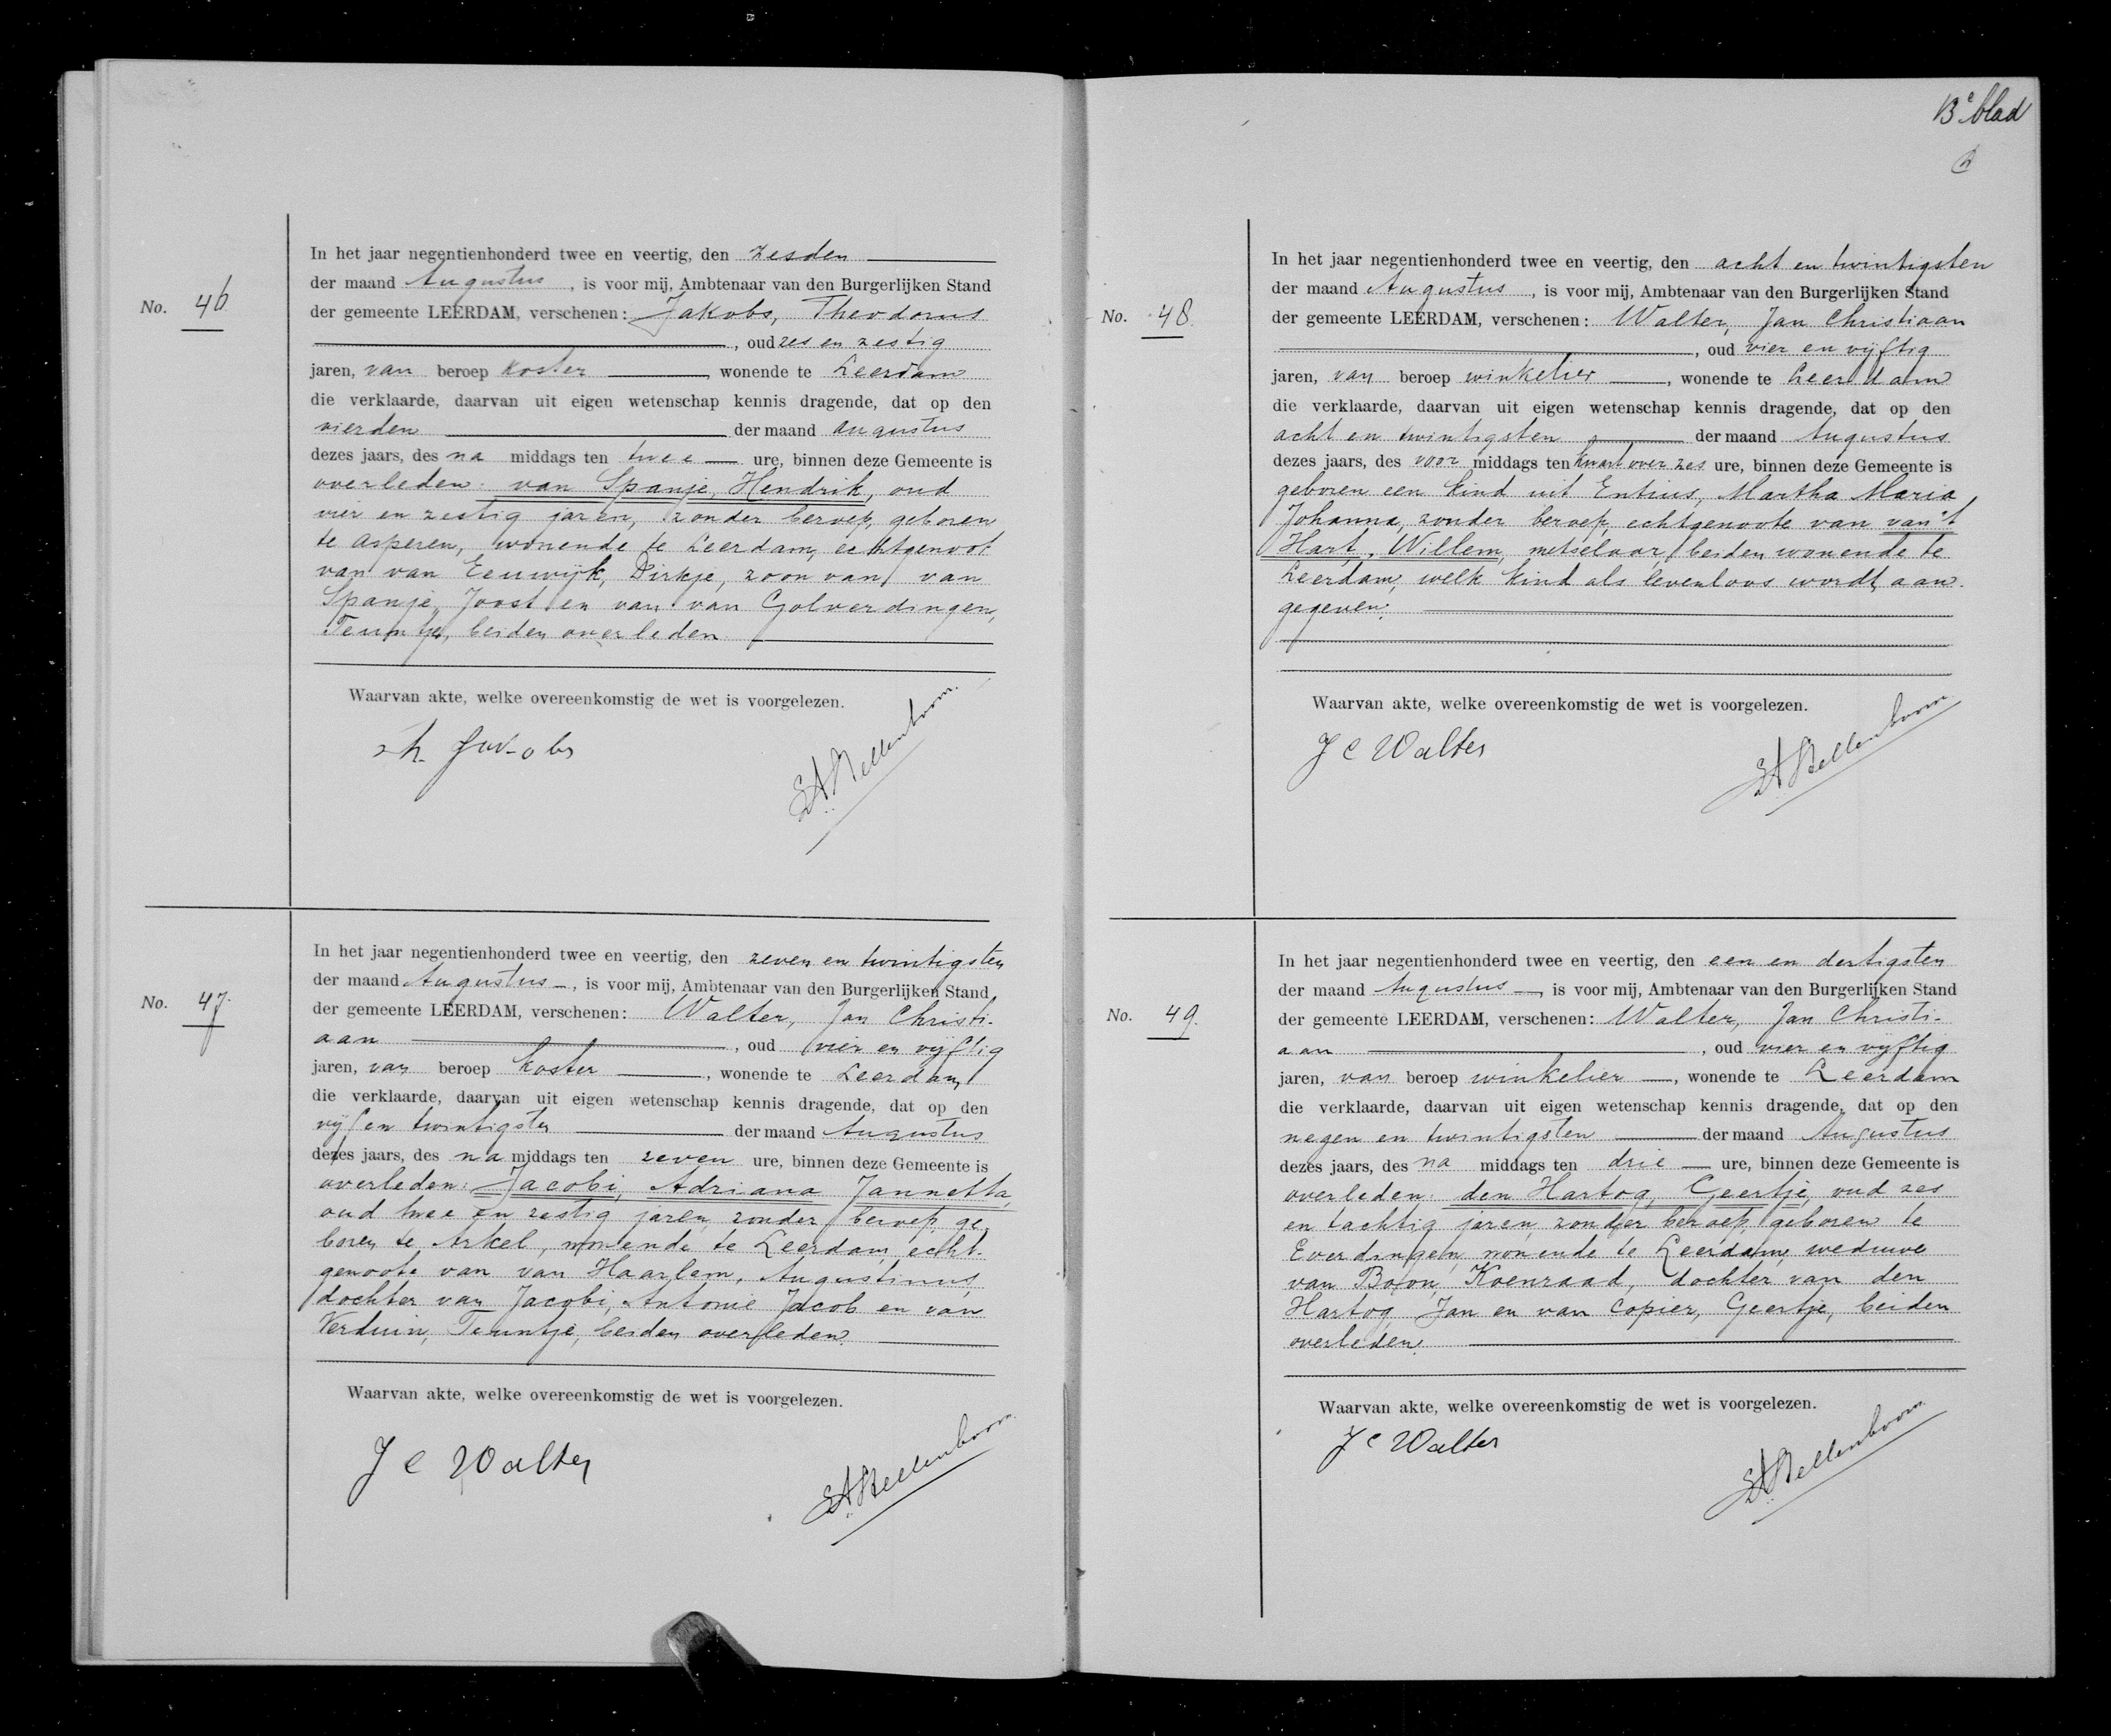 No. 46
In het jaar negentienhonderd twee en veertig, den zesden
der maand Augustus, is voor mij, Ambtenaar van den Burgerlijken Stand
der gemeente LEERDAM, verschenen: Jakobs, Theodorus
, oud zes en zestig
jaren, van beroep koster, wonende te Leerdam
die verklaarde, daarvan uit eigen wetenschap kennis dragende, dat op den
vierden der maand augustus
dezes jaars, des na middags ten twee ure, binnen deze Gemeente is
overleden: van Spanje, Hendrik, oud
vier en zestig jaren, zonder beroep, geboren
te Asperen, wonende te Leerdam, echtgenoot
van van Eeuwijk, Dirkje, zoon van van
Spanje, Joost en van van Golverdingen,
Teuntje, beiden overleden
Waarvan akte, welke overeenkomstig de wet is voorgelezen.
Th. Jakobs
No. 47.
In het jaar negentienhonderd twee en veertig, den zeven en twintigsten
der maand Augustus, is voor mij, Ambtenaar van den Burgerlijken Stand
der gemeente LEERDAM, verschenen: Walter, Jan Christi-
aan, oud vier en vijftig
jaren, van beroep koster, wonende te Leerdam
die verklaarde, daarvan uit eigen wetenschap kennis dragende, dat op den
vijf en twintigsten der maand Augustus
dezes jaars, des na middags ten zeven ure, binnen deze Gemeente is
overleden: Jacobi, Adriana Jannetta,
oud twee en zestig jaren, zonder beroep, ge-
boren te Arkel, wonende te Leerdam, echt-
genoote van van Haarlem, Augustinus,
dochter van Jacobi, Antonie Jacob en van
Verduin, Teuntje, beiden overleden.
Waarvan akte, welke overeenkomstig de wet is voorgelezen.
J C Walter
13e blad
No. 48.
In het jaar negentienhonderd twee en veertig, den acht en twintigsten
der maand Augustus, is voor mij, Ambtenaar van den Burgerlijken Stand
der gemeente LEERDAM, verschenen: Walter, Jan Christiaan
, oud vier en vijftig
jaren, van beroep winkelier, wonende te Leerdam
die verklaarde, daarvan uit eigen wetenschap kennis dragende, dat op den
acht en twintigsten der maand Augustus
dezes jaars, des voor middags ten kwart over zes ure, binnen deze Gemeente is
geboren een kind uit Entius, Martha Maria
Johanna, zonder beroep, echtgenoote van van 't
Hart, Willem, metselaar, beiden wonende te
Leerdam, welk kind als levenloos wordt aan-
gegeven.
Waarvan akte, welke overeenkomstig de wet is voorgelezen.
J C Walter
No. 49.
In het jaar negentienhonderd twee en veertig, den een en dertigsten
der maand Augustus, is voor mij, Ambtenaar van den Burgerlijken Stand
der gemeente LEERDAM, verschenen: Walter, Jan Christi-
aan, oud vier en vijftig
jaren, van beroep winkelier, wonende te Leerdam
die verklaarde, daarvan uit eigen wetenschap kennis dragende, dat op den
negen en twintigsten der maand Augustus
dezes jaars, des na middags ten drie ure, binnen deze Gemeente is
overleden: den Hartog, Geertje, oud zes
en tachtig jaren, zonder beroep, geboren te
Everdingen, wonende te Leerdam, weduwe
van Koenraad, dochter van den
Hartog, Jan en van Copier, Geertje, beiden
overleden.
Waarvan akte, welke overeenkomstig de wet is voorgelezen.
J C Walter